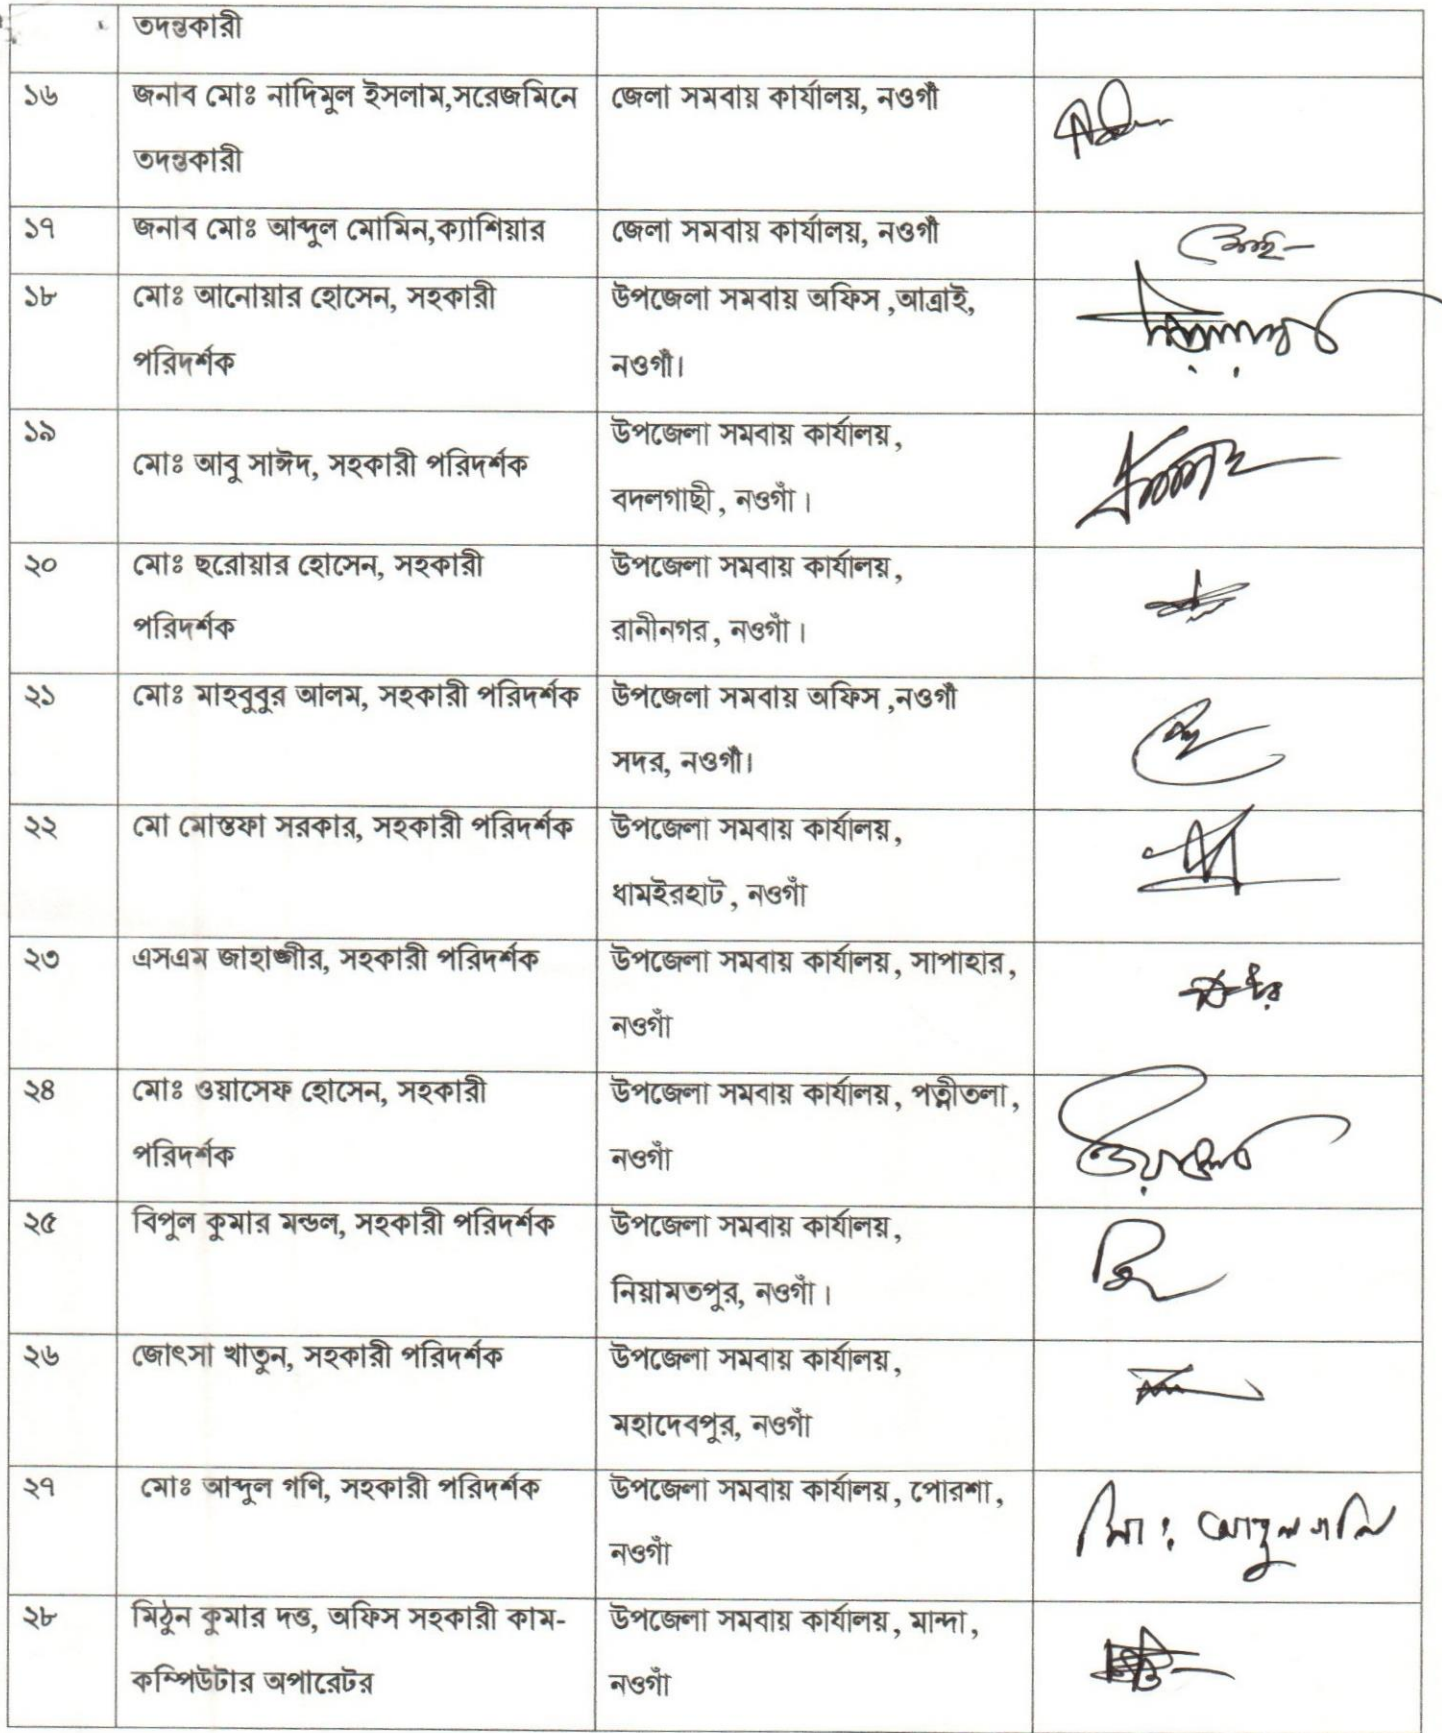 তদন্তকারী
১৬ জনাব মোঃ নাদিমুল ইসলাম,সরেজমিনে জেলা সমবায় কার্যালয়, নওগাঁ
তদন্তকারী
১৭ জনাব মোঃ আব্দুল মোমিন,ক্যাশিয়ার জেলা সমবায় কার্যালয়, নওগাঁ
১৮ মোঃ আনোয়ার হোসেন, সহকারী উপজেলা সমবায় অফিস ,আত্রাই,
পরিদর্শক নওগাঁ।
১৯ উপজেলা সমবায় কার্যালয়,
মোঃ আবু সাঈদ, সহকারী পরিদর্শক
বদলগাছী, নওগাঁ।
২০ মোঃ ছরোয়ার হোসেন, সহকারী উপজেলা সমবায় কার্যালয়,
পরিদর্শক রানীনগর, নওগাঁ।
২১ মোঃ মাহবুবুর আলম, সহকারী পরিদর্শক উপজেলা সমবায় অফিস ,নওগাঁ
সদর, নওগাঁ।
২২ মো মোস্তফা সরকার, সহকারী পরিদর্শক উপজেলা সমবায় কার্যালয়,
ধামইরহাট, নওগাঁ
২৩ এসএম জাহাঙ্গীর, সহকারী পরিদর্শক উপজেলা সমবায় কার্যালয়, সাপাহার,
নওগাঁ
২৪ মোঃ ওয়াসেফ হোসেন, সহকারী উপজেলা সমবায় কার্যালয়, পত্নীতলা,
পরিদর্শক নওগাঁ
২৫ বিপুল কুমার মন্ডল, সহকারী পরিদর্শক উপজেলা সমবায় কার্যালয়,
নিয়ামতপুর, নওগাঁ।
২৬ জোৎসা খাতুন, সহকারী পরিদর্শক উপজেলা সমবায় কার্যালয়,
মহাদেবপুর, নওগাঁ
২৭ মোঃ আব্দুল গণি, সহকারী পরিদর্শক উপজেলা সমবায় কার্যালয়, পোরশা, মো: আব্দুল গনি
নওগাঁ
২৮ মিঠুন কুমার দত্ত, অফিস সহকারী কাম- উপজেলা সমবায় কার্যালয়, মান্দা,
কম্পিউটার অপারেটর নওগাঁ